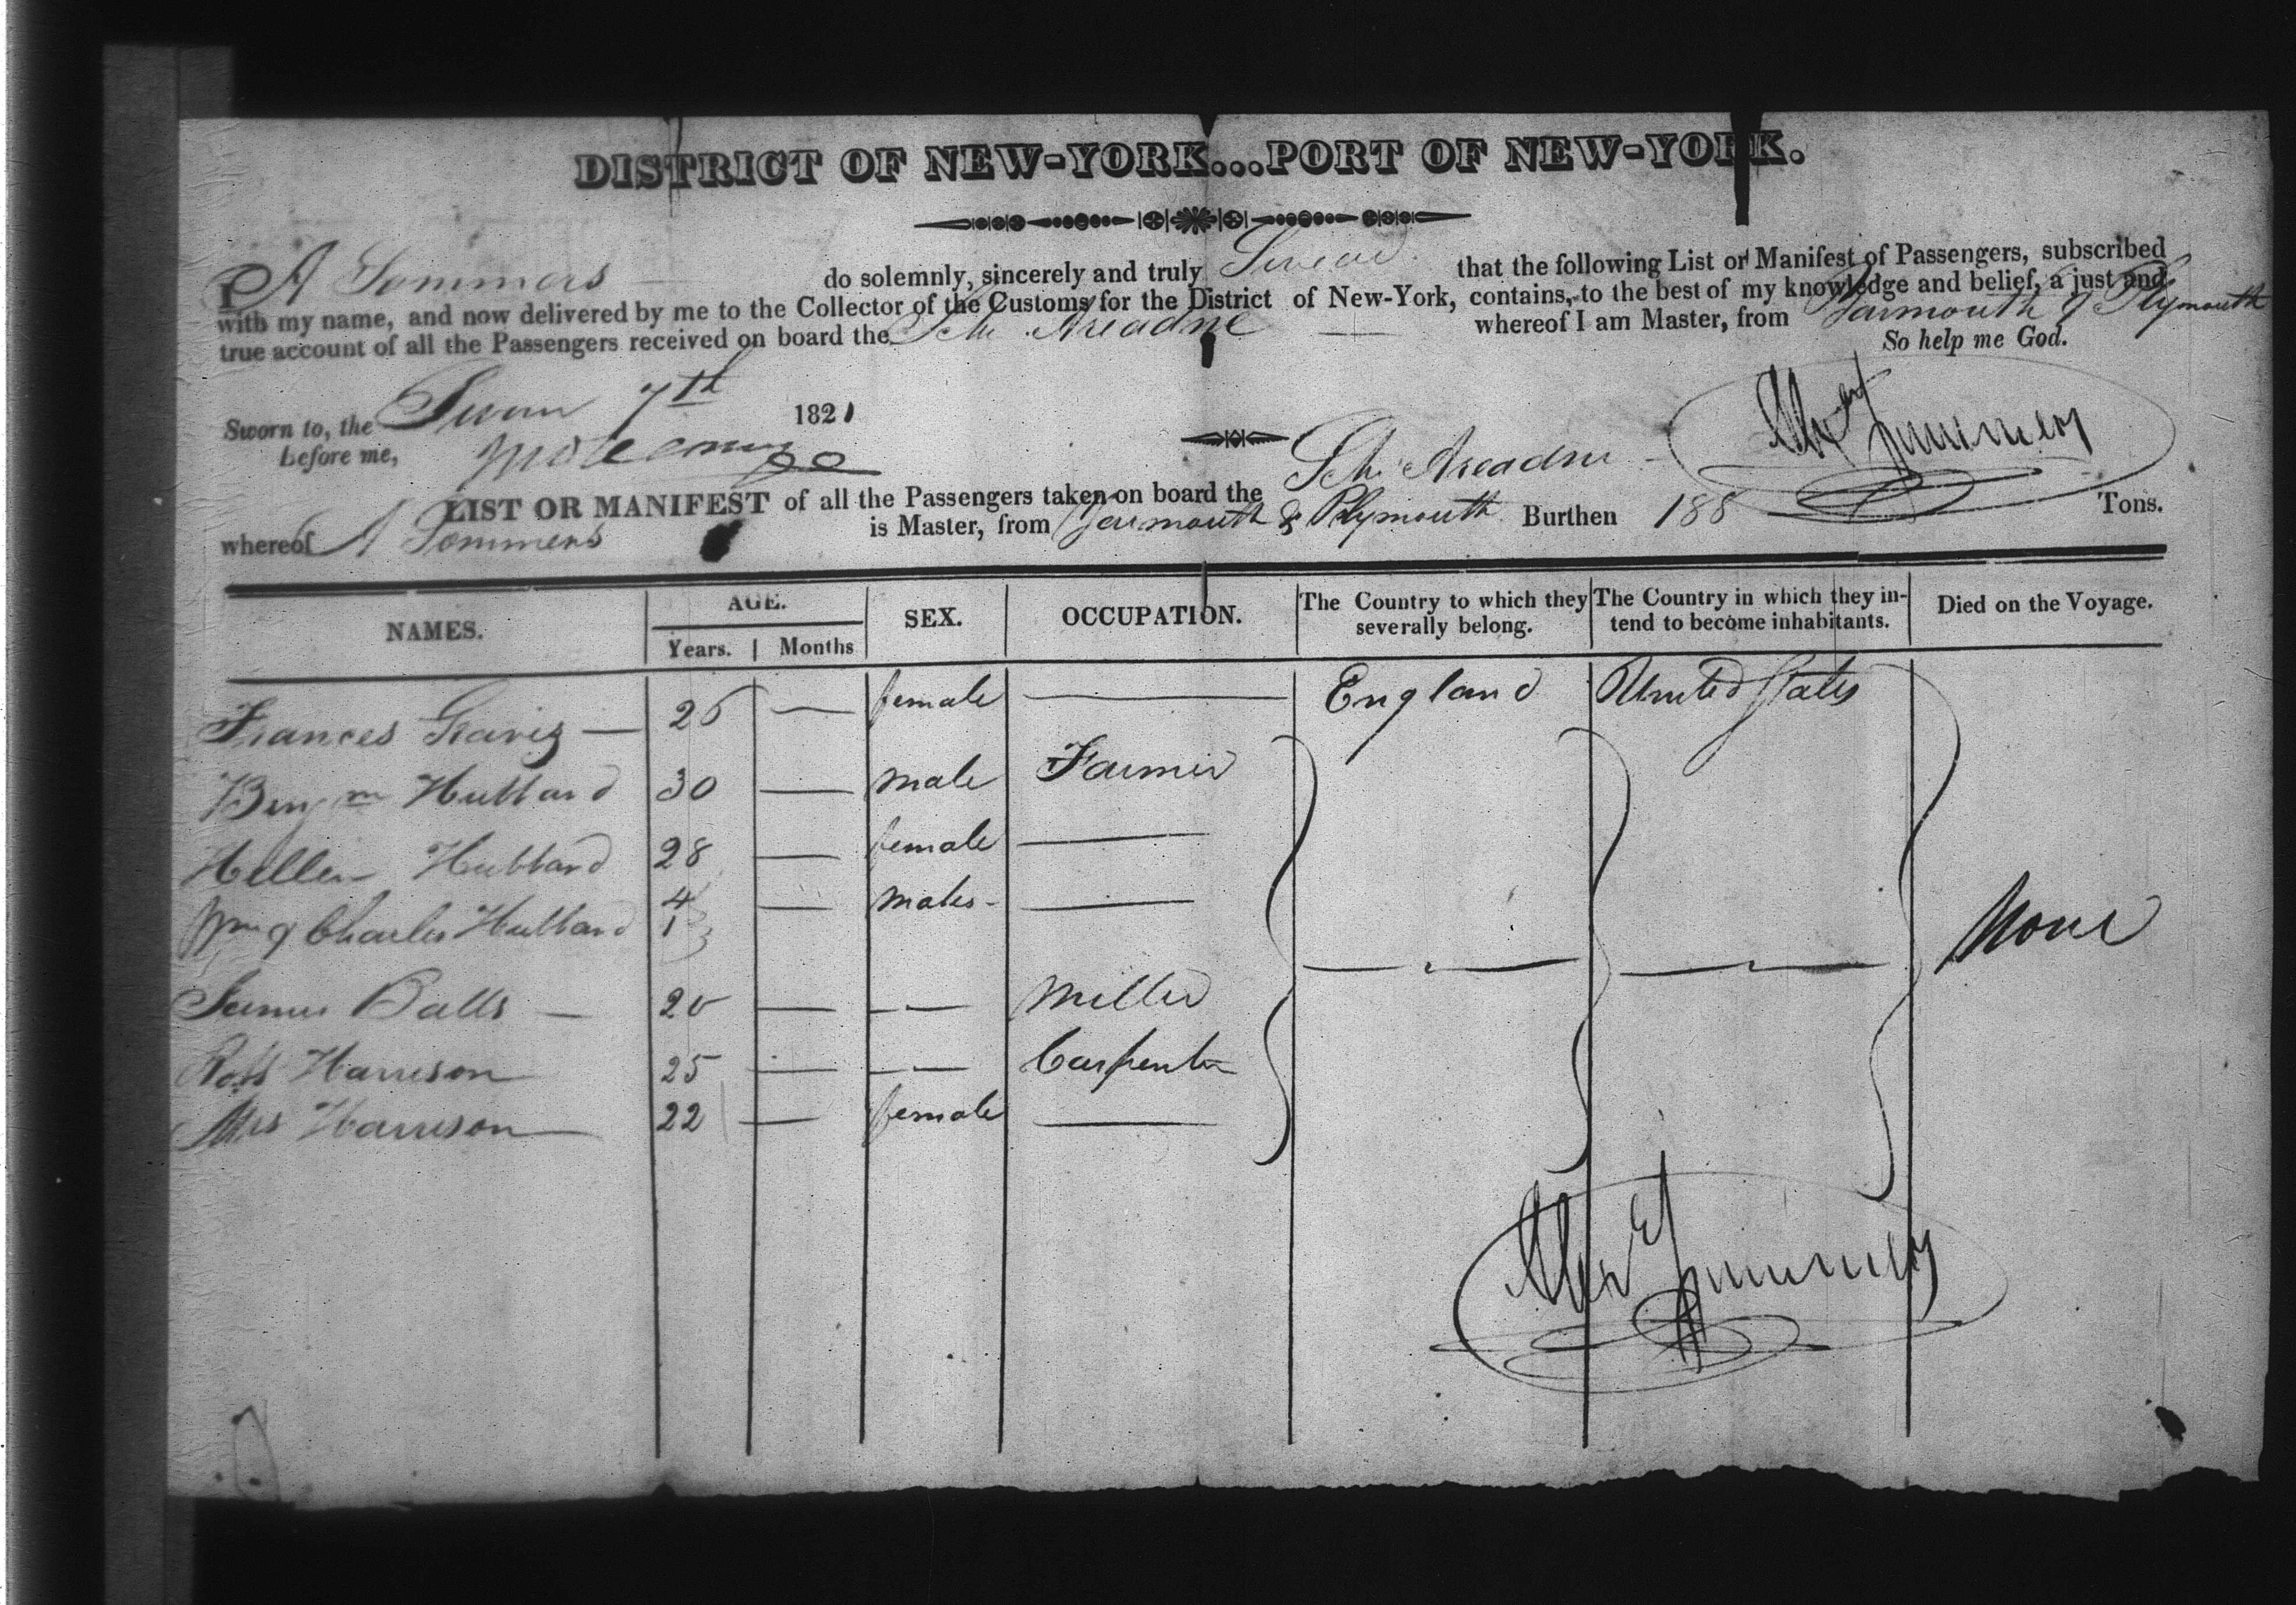 DISTRICT OF NEW-YORK...PORT OF NEW-YORK.
I A Sommers do solemnly, sincerely and truly Swear that the following List or Manifest of Passengers, subscribed
with my name, and now delivered by me to the Collector of the Customs for the District of New-York, contains, to the best of my knowledge and belief, a just and
true account of all the Passengers received on board the Sch Areadne whereof I am Master, from Yarmouth & Plymouth
So help me God.
Sworn to, the 7th 1821
before me,
LIST OR MANIFEST of all the Passengers taken on board the Sch Areadne
whereof A Sommers is Master, from Yarmouth & Plymouth Burthen 188 Tons.
NAMES. AGE. Years. Months SEX. OCCUPATION. The Country to which they severally belong. The Country in which they intend to become inhabitants. Died on the Voyage.
Frances 26 — female — England United States
Benjm Hubbard 30 — male Farmer
Hellen Hubbard 28 — female —
Wm & Charles Hubbard 4 1 — males — —
James Balls — 20 — — Miller
Harrison 25 — — Carpenter
Mrs Harrison — 22 — female —
None